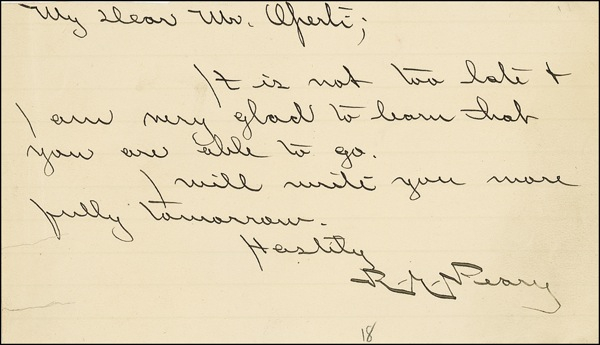 My dear Mr. Operti;
It is not too late &
I am very glad to learn that
you are able to go.
I will write you more
fully tomorrow.
Hastily
R. E. Peary
18